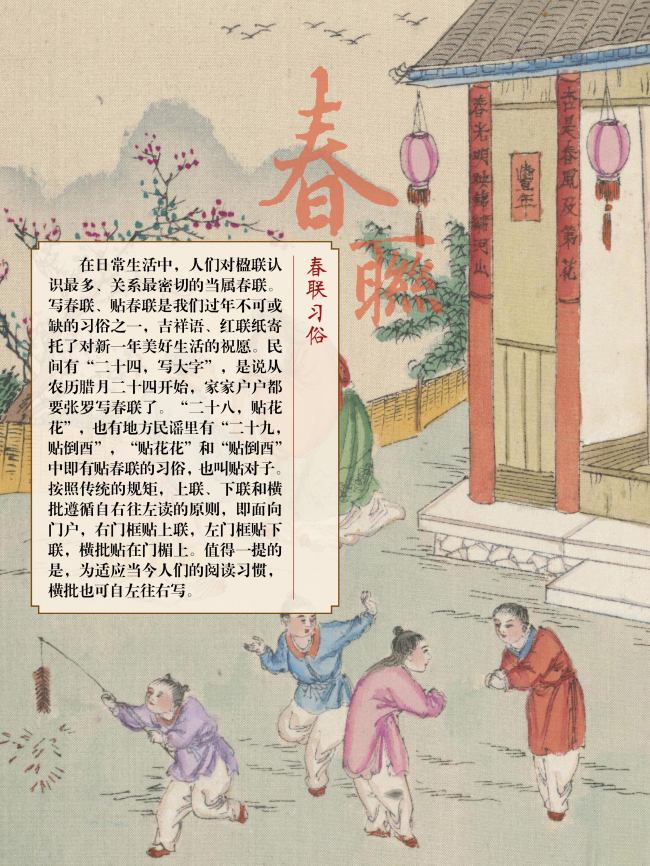 春聯
春联习俗
在日常生活中，人们对楹联认
识最多、关系最密切的当属春联。
写春联、贴春联是我们过年不可或
缺的习俗之一，吉祥语、红联纸寄
托了对新一年美好生活的祝愿。民
间有“二十四，写大字”，是说从
农历腊月二十四开始，家家户户都
要张罗写春联了。“二十八，贴花
花”，也有地方民谣里有“二十九，
贴倒酉”，“贴花花”和“贴倒酉”
中即有贴春联的习俗，也叫贴对子。
按照传统的规矩，上联、下联和横
批遵循自右往左读的原则，即面向
门户，右门框贴上联，左门框贴下
联，横批贴在门楣上。值得一提的
是，为适应当今人们的阅读习惯，
横批也可自左往右写。
杏是春風及第花
豐年
春光明映錦繡河山